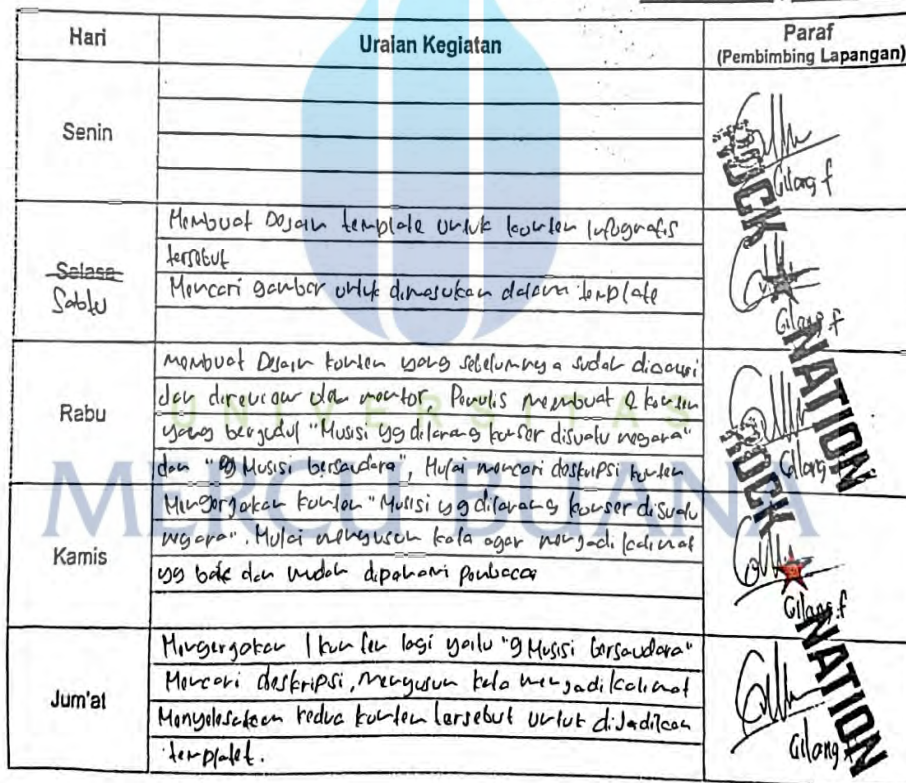 Hari Uraian Kegiatan Paraf
(Pembimbing Lapangan)
Senin
Gilang f
Membuat Desain template untuk konten Infografis
tersebut
Selasa
Sabtu
Mencari gambar untuk dimasukan dalam template
Gilang f
membuat Desain konten yang sebelumnya sudah
dan direview oleh mentor, Penulis membuat 2 konten
Rabu
yang berjudul "Musisi yg dilarang konser disuatu negara"
dan "9 Musisi bersaudara", Mulai mencari deskripsi konten
Gilang
Mengerjakan konten "Musisi yg dilarang konser disuatu
negara". Mulai menyusun kata agar menjadi kalimat
Kamis
yg baik dan mudah dipahami pembaca
Gilang f
Mengerjakan 1 konten lagi yaitu "9 Musisi bersaudara"
Mencari deskripsi, menyusun kata menjadi kalimat
Jum'at
Menyelesaikan kedua konten tersebut untuk dijadikan
templatet.
Gilang f
UNIVERSITAS
MERCU BUANA
ROCK NATION
ROCK NATION